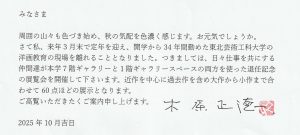 みなさま
周囲の山々も色づき始め、秋の気配を色濃く感じます。お元気でしょうか。
さて私、来年3月末で定年を迎え、開学から34年間勤めた東北芸術工科大学の
洋画教育の現場を離れることとなりました。つきましては、日々仕事を共にする
仲間達が本学7階ギャラリーと1階ギャラリースペースの両方を使った退任記念
の展覧会を開催して下さいます。近作を中心に過去作を含め大作から小作まで
合わせて60点ほどの展示となります。
ご高覧いただきたくご案内申し上げます。
木原正徳
2025年10月吉日